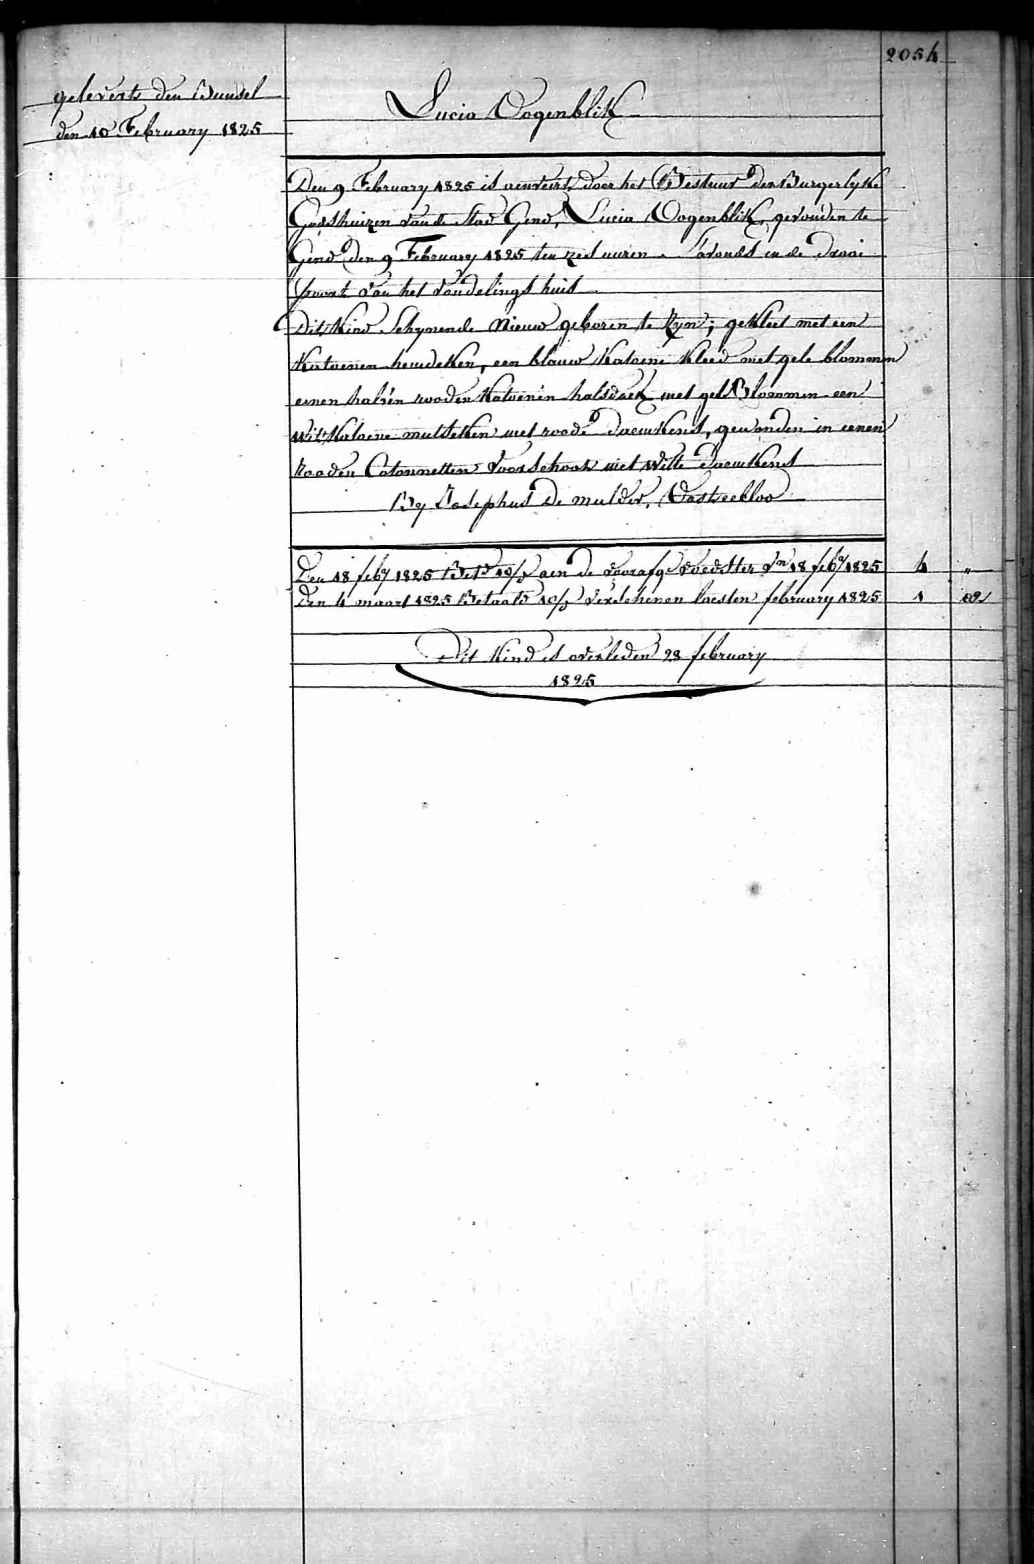 2054
geleverts den Bunsel
den 10 February 1825
Lucia Oogenblik
Den 9 February 1825 is aenveirt door het Bestuur den Burgerlyke
Godshuizen van de Stad Gend, Lucia Oogenblik, gevonden te
Gend den 9 February 1825 ten zes uuren S'avonds in de Draai
poort van het vondelings huis
Dit Kind Schynende Nieuw geboren te Zyn; gekleet met een
Katoenen hemdeken, een blauw Katoene Kleed met gele blommen
eenen halven rooden Katoenen halsdoek met gele Bloommen een
wit Katoene mutsteken met roode daemkens, gewonden in eenen
Rooden Cotonnetten Voorschoot met Witte Daemkens
By Josephus De mulder, Oosteecloo
Den 18 feby 1825 Betd 10/s aen de voorafge voedster dn 18 feby 1825 4 "
Den 4 maart 1825 Betaald 10/s verschenen laesten february 1825 1 82
Dit Kind is overleden 28 february
1825